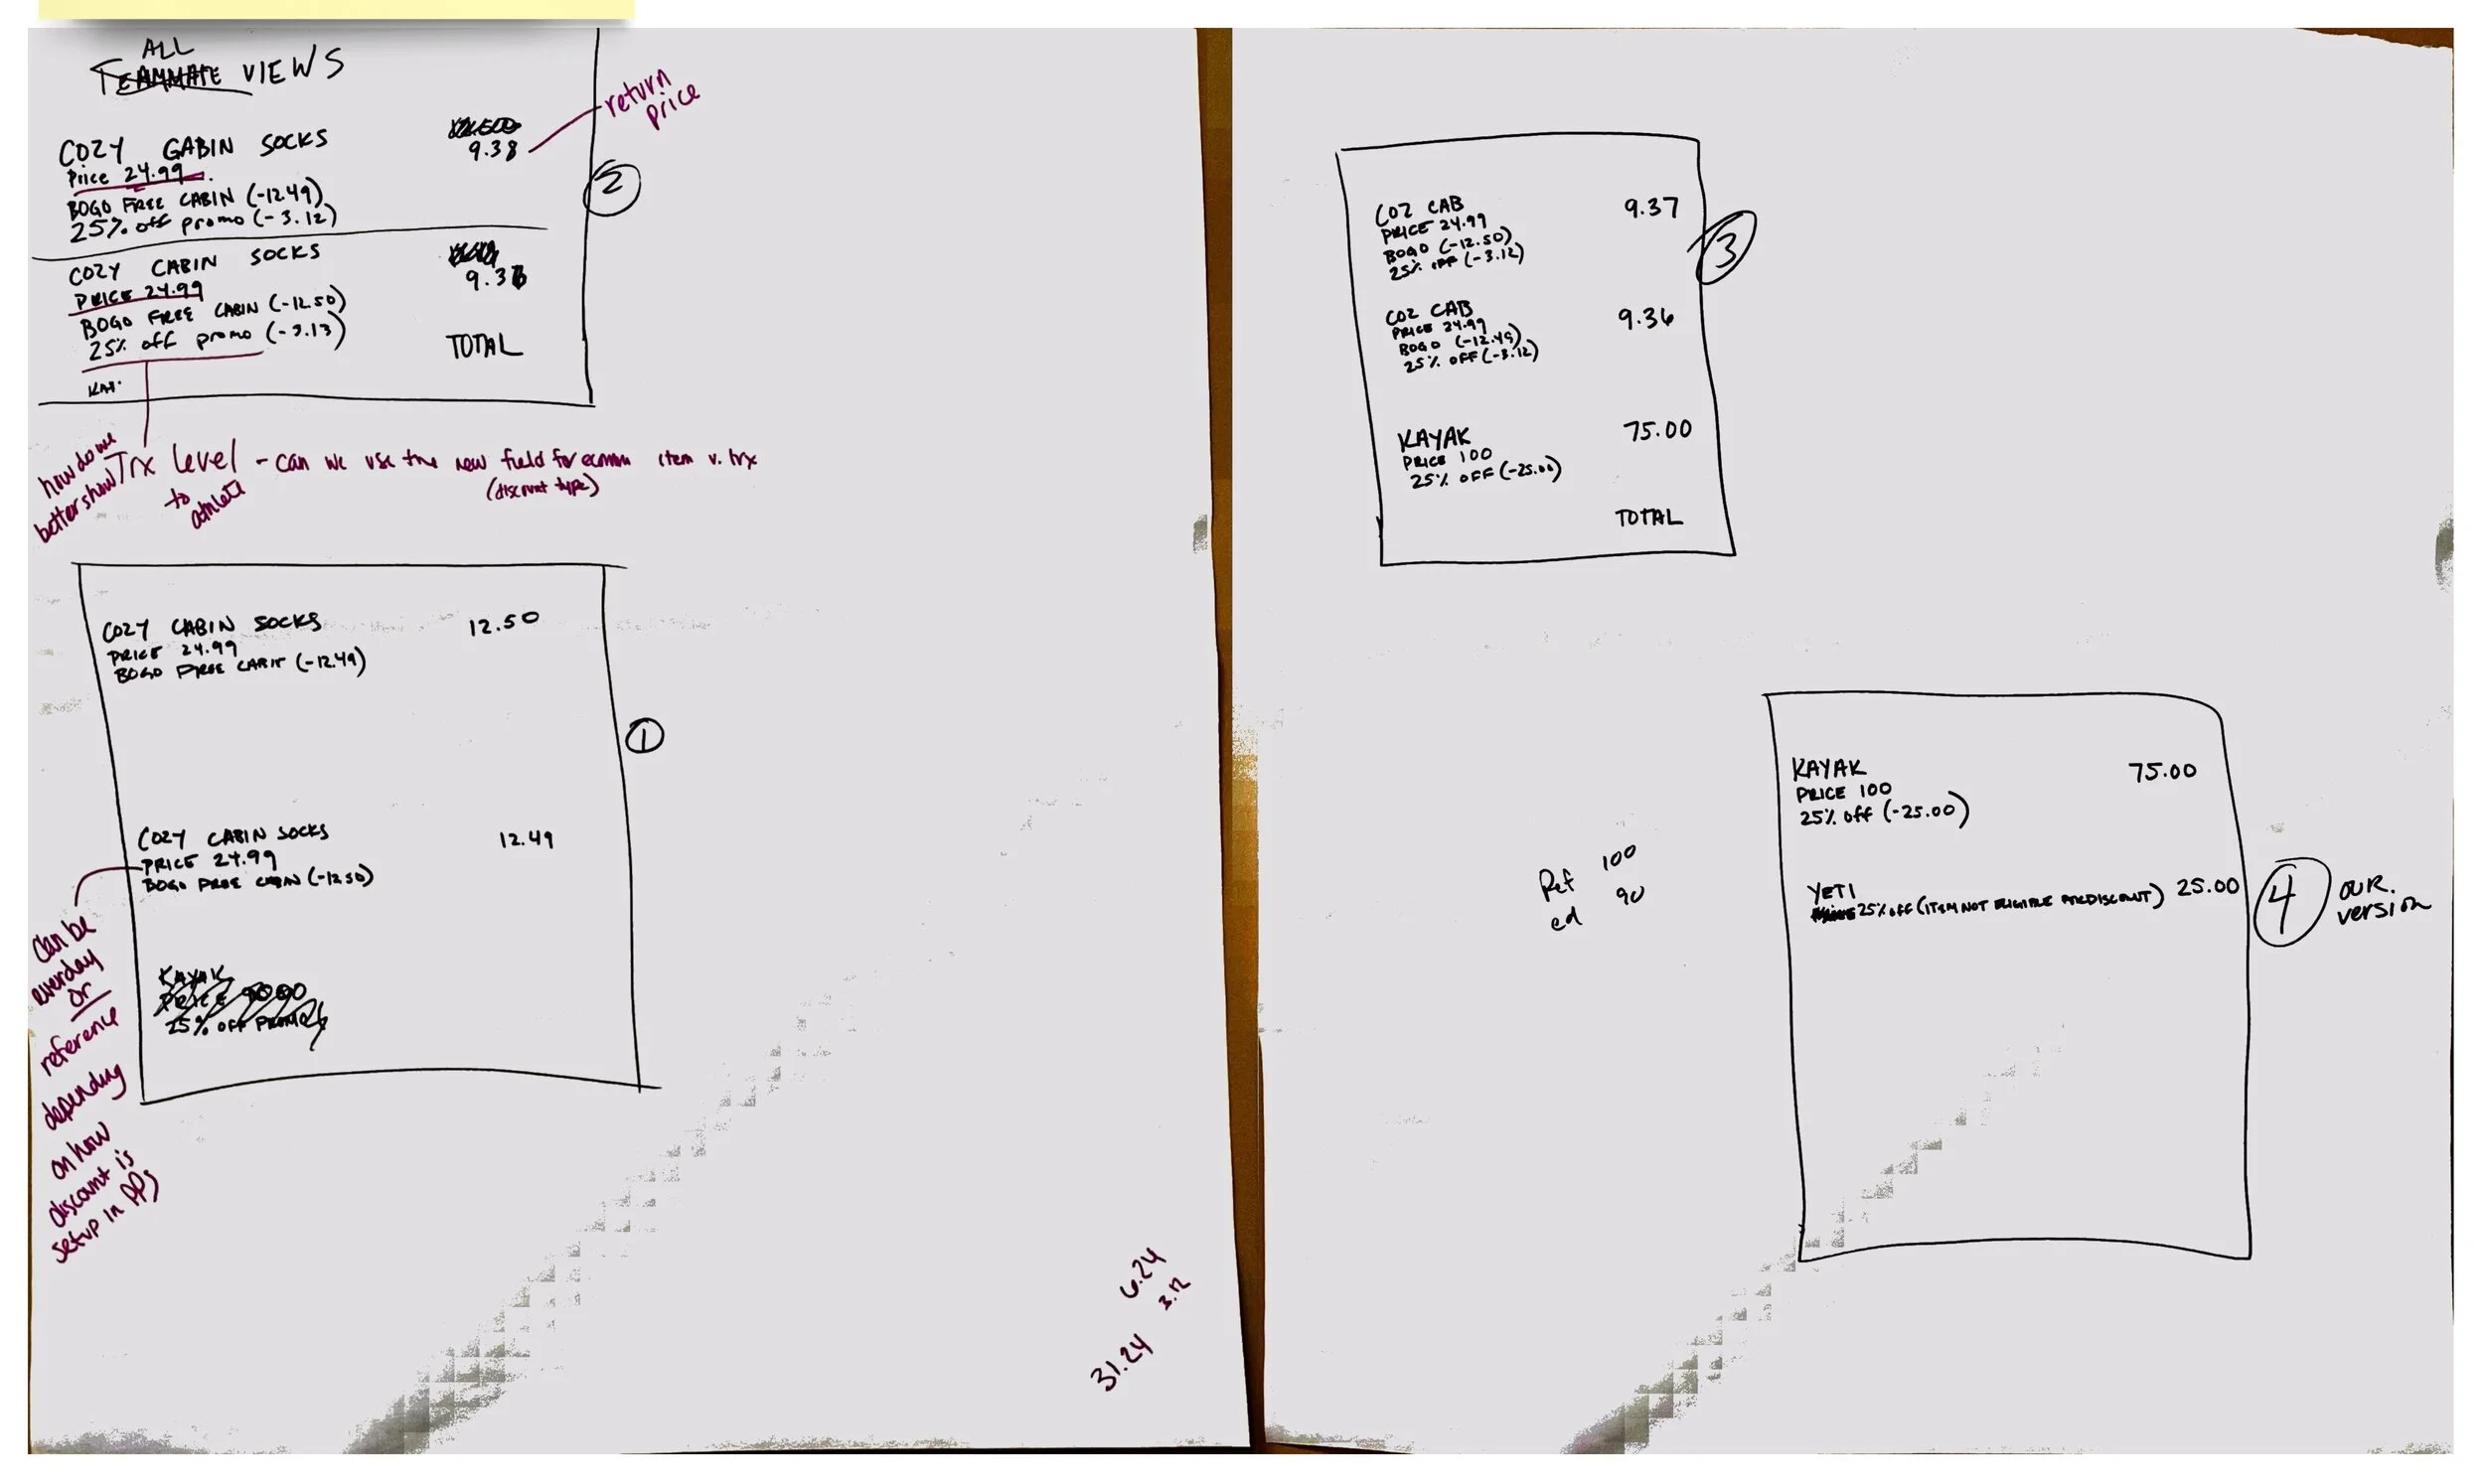 ALL
TEAMMATE VIEWS
return
price
COZY CABIN SOCKS
9.38
Price 24.99
BOGO FREE CABIN (-12.49)
25% off promo (-3.12)
2
COZY CABIN SOCKS
9.3
PRICE 24.99
BOGO FREE CABIN (-12.50)
25% off promo (-3.13)
TOTAL
KAY
how do we
better show Trx level - can we use the new field for ecomm item v. trx
to
athlete
(discount type)
COZY CABIN SOCKS 12.50
PRICE 24.99
BOGO FREE CABIN (-12.49)
1
COZY CABIN SOCKS 12.49
PRICE 24.99
BOGO FREE CABIN (-12.50)
can be
everday
or
reference
depending
on how
discount is
setup in
KAYAK
PRICE
25% OFF PROMO
6.24
3.12
31.24
COZ CAB 9.37
PRICE 24.99
BOGO (-12.50)
25% OFF (-3.12)
3
COZ CAB 9.36
PRICE 24.99
BOGO (-12.49)
25% OFF (-3.12)
KAYAK 75.00
PRICE 100
25% OFF (-25.00)
TOTAL
KAYAK 75.00
PRICE 100
25% off (-25.00)
Ref 100
ed 90
YETI 25.00
25% off (ITEM NOT ELIGIBLE FOR DISCOUNT)
4
OUR
version